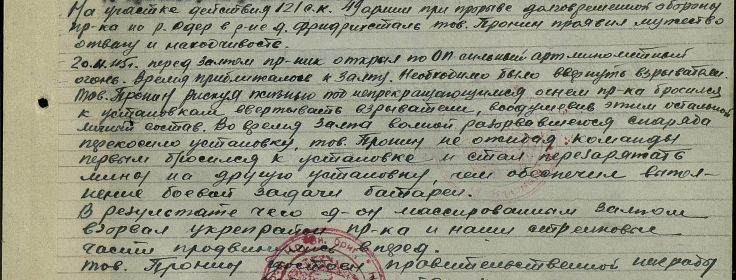 На участке действия 121 с.к. 49 армии при прорыве долговременной обороны
пр-ка на р. Одер в р-не д. Фридрихсталь тов. Пронин проявил мужество
отвагу и находчивость.
20.4.45г. перед залпом пр-ник открыл по ОП сильный артминометный
огонь. Время приближалось к залпу. Необходимо было ввернуть взрыватели.
Тов. Пронин рискуя жизнью под непрекращающимся огнем пр-ка бросился
к установкам ввертывать взрыватели, воодушевив этим остальной
личный состав. Во время залпа волной разорвавшегося снаряда
перекосило установку, тов. Пронин не ожидая команды
первым бросился к установке и стал перезаряжать
мины на другую установку, чем обеспечил выпол-
нение боевой задачи батареи.
В результате чего д-он массированным залпом
взорвал укрепрайон пр-ка и наши стрелковые
части продвинулись вперед.
тов. Пронин достоен правительственной награды